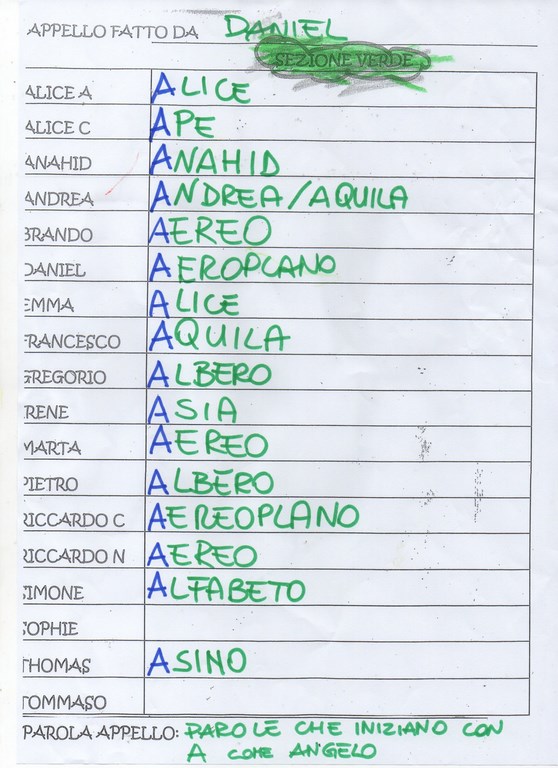 APPELLO FATTO DA DANIEL
SEZIONE VERDE
ALICE A ALICE
ALICE C APE
ANAHID ANAHID
ANDREA ANDREA/AQUILA
BRANDO AEREO
DANIEL AEROPLANO
EMMA ALICE
FRANCESCO AQUILA
GREGORIO ALBERO
IRENE ASIA
MARTA AEREO
PIETRO ALBERO
RICCARDO C AEREOPLANO
RICCARDO N AEREO
SIMONE ALFABETO
SOPHIE
THOMAS ASINO
TOMMASO
PAROLA APPELLO: PAROLE CHE INIZIANO CON
A COME ANGELO